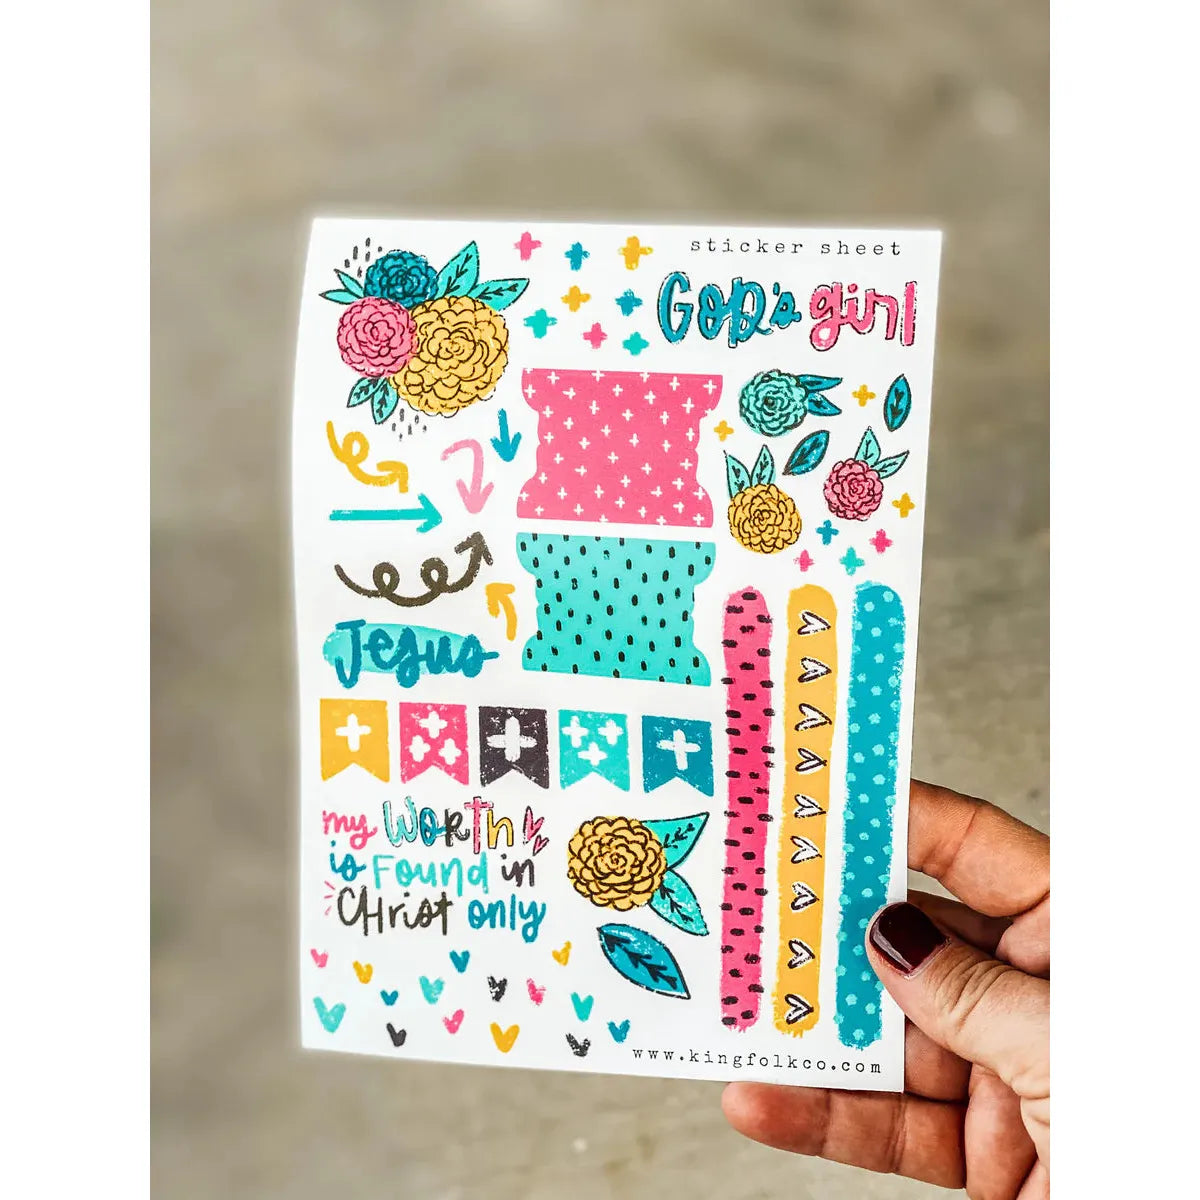 sticker sheet
GOD's girl
Jesus
my WORTH
is Found in
CHrist only
www.kingfolkco.com